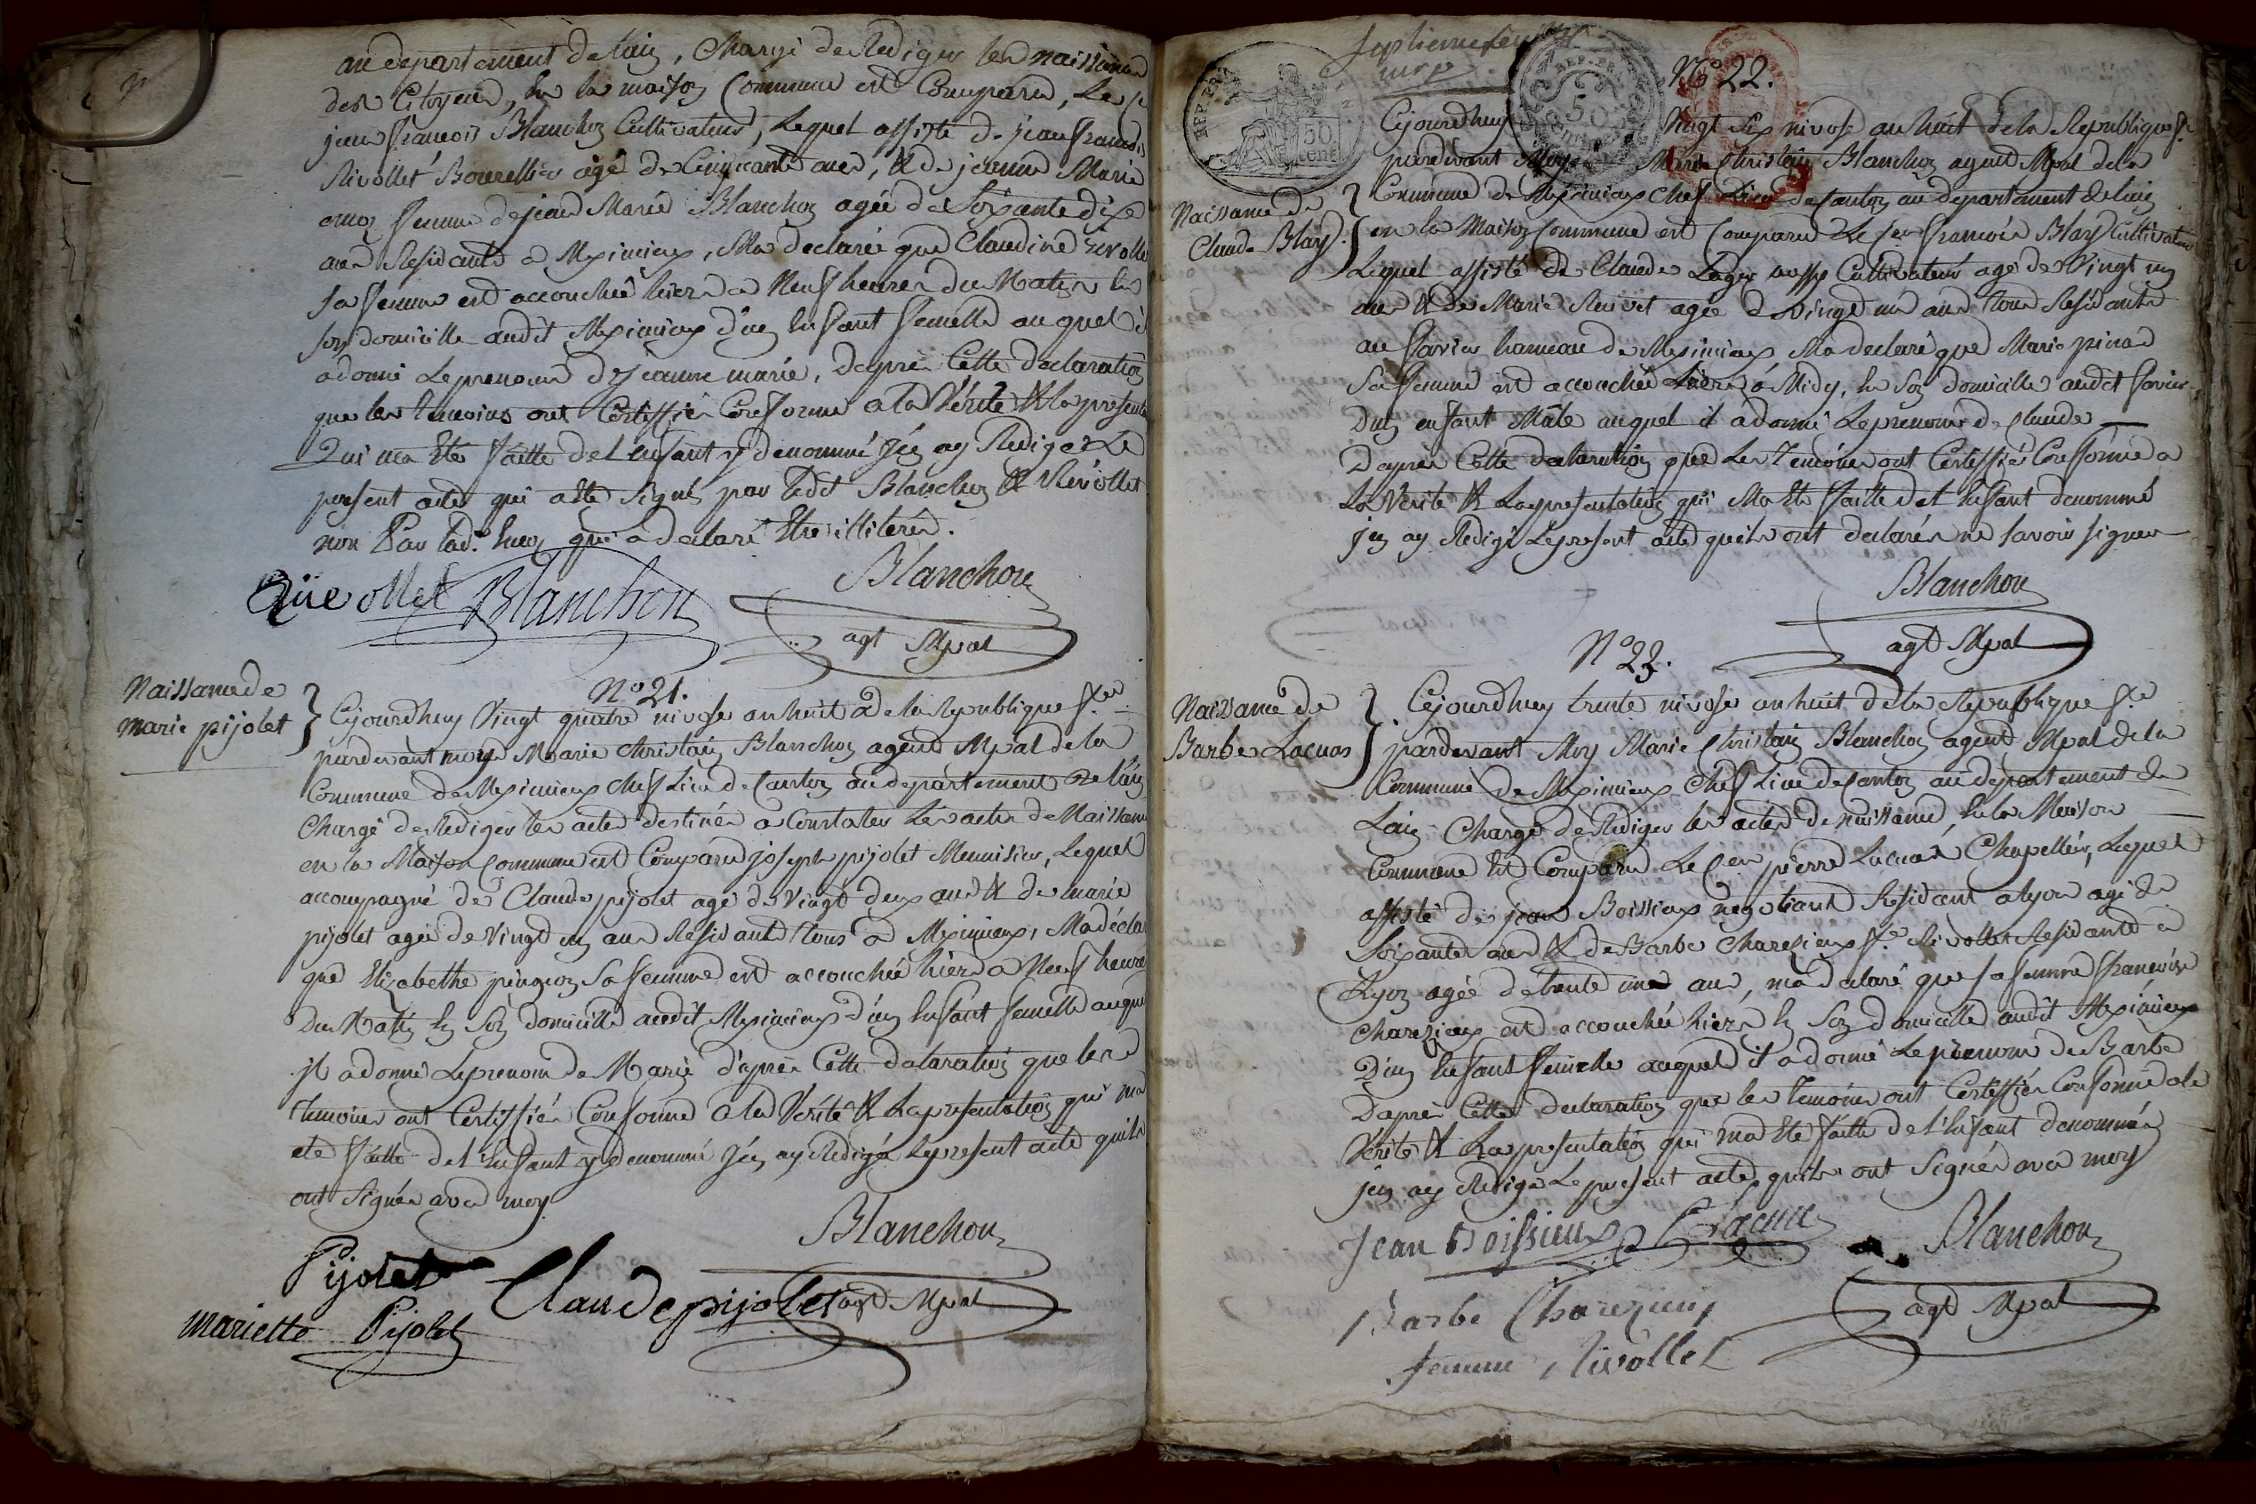 au departement de lain, Chargé de Rediger les naissances
des Citoyens, En la maison Commune est Comparu, Le
jean francois Blanchon Cultivateur, Lequel assisté de jean francois
Rivollet Bourellier agé de Cinquante ans, & de jeanne Marie
femme de jean Marie Blanchon agée de Soixante dix
ans Residants a Meximieux, Ma declaré que Claudine Rivollet
sa femme est accouchée hier a Neuf heures du Matin En
son domicille audit Meximieux d'un Enfant femelle auquel il
a donné Le prenom de jeanne marie, d'apres Cette declaration
que les temoins ont Certiffiés Conforme a la Vérité & la presentation
Qui ma Eté faitte de L'enfant y denommé j'en ay Redigé Le
present acte qui a Eté Signé par ledit Blanchon & Rivollet
non Par lad. qui a declaré Etre illiterée.
Rivollet Blanchon Blanchon
agt Mpal
N° 21.
Naissance de
marie pijolet
Cejourdhuy Vingt quatre nivose an huit de la Republique f.se
pardevant moy Marie Christain Blanchon agent Mpal de la
Commune de Meximieux Chef Lieu de Canton au departement de l'ain
Chargé de Rediger les actes destinés a Constater Les actes de Naissances
en la Maison Commune est Comparu joseph pijolet Menuisier, Lequel
accompagné de Claude pijolet agé de vingt deux ans & de marie
pijolet agée de vingt un ans Residants tous a Meximieux, Ma déclaré
que Elizabethe sa femme est accouchée hier a Neuf heures
Du Matin En Son domicille audit Meximieux d'un Enfant femelle auquel
il a donné Le prenom de Marie d'apres Cette declaration que les
Temoins ont Certiffiés Conforme a la Vérité & La presentation qui ma
eté faitte de l'Enfant y denommé j'en ay Redigé Le present acte quils
ont Signés avec moy
Blanchon
Pijolet Claude pijolet agt Mpal
mariette Pijolet
Septieme feuille
REP. FRA.
50
cent
N° 22.
Naissance de
Claude Blay
Cejourdhuy Vingt Six nivose an huit de la Republique f.
pardevant Moy Marie Christain Blanchon agent Mpal de la
Commune de Meximieux Chef Lieu de Canton au departement de lain
en la Maison Commune est Comparu Le francois Blay Cultivateur
Lequel assisté de Claude Loger aussy Cultivateur agé de Vingt un
ans & de Marie agée de vingt un ans tous Residants
au hameau de Meximieux Ma declaré que Marie pinad
Sa femme est accouchée hier a Midy, En Son domicille audit
D'un enfant Mâle auquel il a donné Le prenom de Claude
D'apres Cette declaration que Les Temoins ont Certiffiés Conforme a
La Vérité & La presentation qui Ma Eté faitte de L'Enfant denommé
j'en ay Redigé Le present acte quils ont declarés ne savoir signer
Blanchon
agt Mpal
N° 23.
Naissance de
Barbe Lacuas
Cejourdhuy trente nivose an huit de la Republique f.se
pardevant Moy Marie Christain Blanchon agent Mpal de la
Commune de Meximieux Chef Lieu de Canton au departement de
Lain Chargé de Rediger les actes de naissance, En la Maison
Commune Est Comparu Le Cen pierre Lacuas Chapellier, Lequel
assisté de jean Boissieux negotiant Residant a lyon agé de
Soixante ans & de Barbe Charezieux f.e Rivollet Residante a
Lyon agée de trente un ans, ma declaré que sa femme francoise
Charezieux est accouchée hier En Son domicille audit Meximieux
D'un Enfant femelle auquel il a donné Le prenom de Barbe
D'apres Cette declaration que les temoins ont Certiffiés Conforme a la
Vérité & La presentation qui ma Eté faitte de l'Enfant denommée
j'en ay Redigé Le present acte quils ont Signés avec moy
Jean Boissieux Blanchon
agt Mpal
Barbe
femme Rivollet